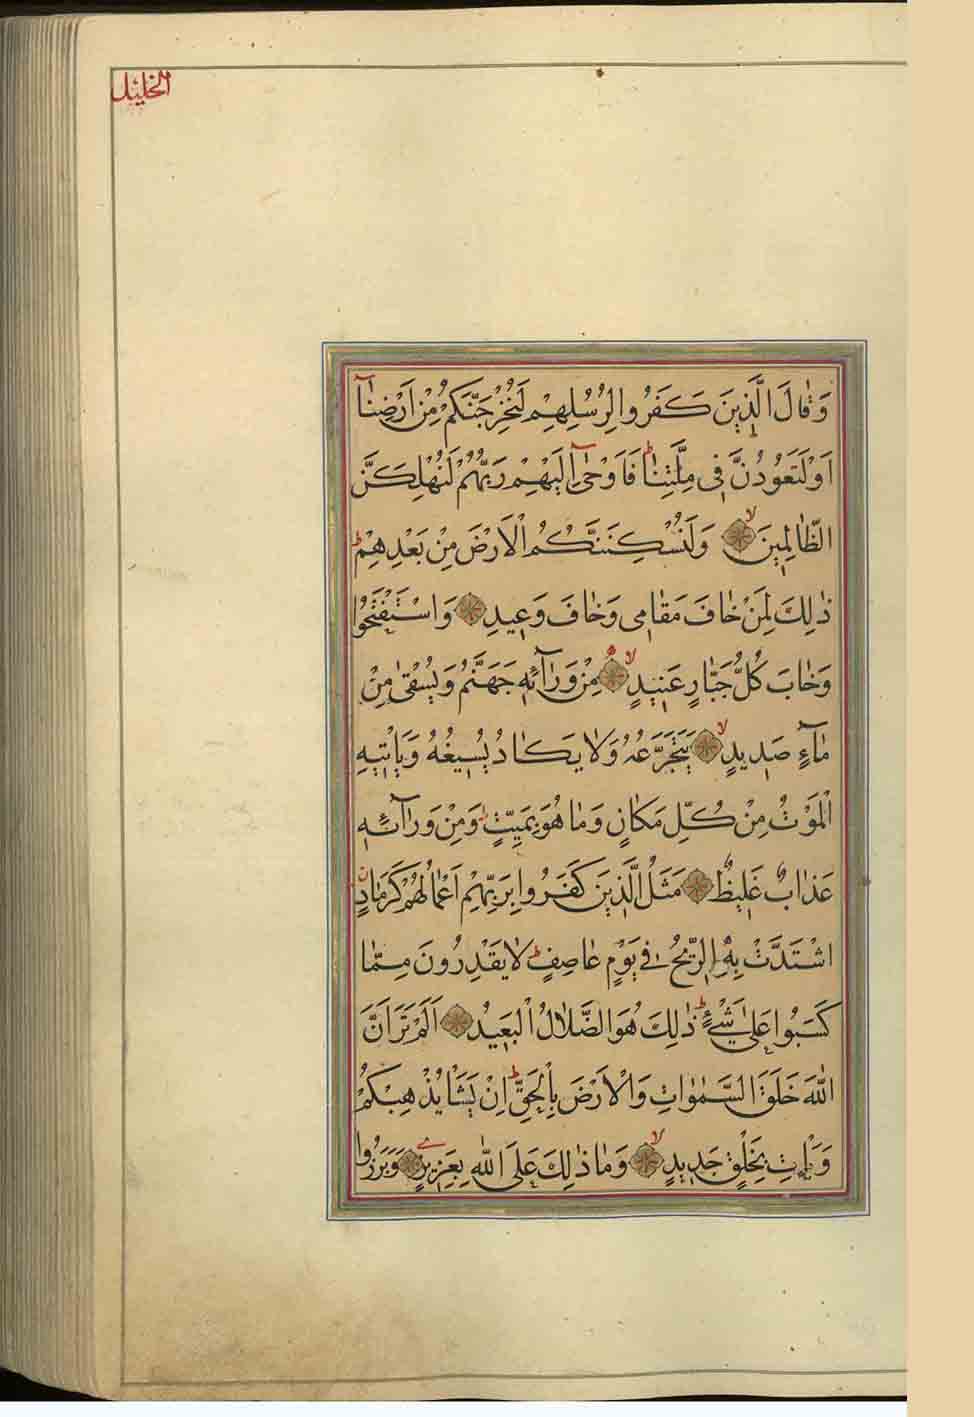 الخليل
وَقٰالَ الَّذِينَ كَفَرُوا لِرُسُلِهِمْ لَنُخْرِجَنَّكُمْ مِنْ اَرْضِنٰآ
اَوْ لَتَعُودُنَّ فِي مِلَّتِنٰا ط فَاَوْحٰىٓ اِلَيْهِمْ رَبُّهُمْ لَنُهْلِكَنَّ
الظّٰالِمِينَ لا وَلَنُسْكِنَنَّكُمُ الْاَرْضَ مِنْ بَعْدِهِمْ ط
ذٰلِكَ لِمَنْ خٰافَ مَقٰامِي وَخٰافَ وَعِيدِ وَاسْتَفْتَحُوا
وَخٰابَ كُلُّ جَبّٰارٍ عَنِيدٍ لا مِنْ وَرٰآئِهِ جَهَنَّمُ وَيُسْقٰى مِنْ
مٰآءٍ صَدِيدٍ لا يَتَجَرَّعُهُ وَلٰا يَكٰادُ يُسِيغُهُ وَيَاْتِيهِ
الْمَوْتُ مِنْ كُلِّ مَكٰانٍ وَمٰا هُوَ بِمَيِّتٍ ط وَمِنْ وَرٰآئِهِ
عَذٰابٌ غَلِيظٌ مَثَلُ الَّذِينَ كَفَرُوا بِرَبِّهِمْ اَعْمٰالُهُمْ كَرَمٰادٍ
اشْتَدَّتْ بِهِ الرِّيحُ فِي يَوْمٍ عٰاصِفٍ ط لٰا يَقْدِرُونَ مِمّٰا
كَسَبُوا عَلىٰ شَيْءٍ ط ذٰلِكَ هُوَ الضَّلٰالُ الْبَعِيدُ اَلَمْ تَرَ اَنَّ
اللّٰهَ خَلَقَ السَّمٰوٰاتِ وَالْاَرْضَ بِالْحَقِّ ط اِنْ يَشَاْ يُذْهِبْكُمْ
وَيَاْتِ بِخَلْقٍ جَدِيدٍ لا وَمٰا ذٰلِكَ عَلَى اللّٰهِ بِعَزِيزٍ وَبَرَزُوا